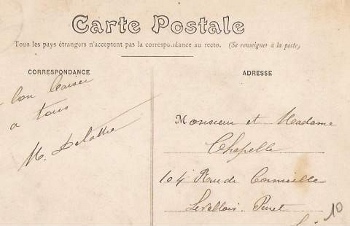 Carte Postale
Tous les pays étrangers n'acceptent pas la correspondance au recto. (Se renseigner à la poste)
CORRESPONDANCE
Bon baiser
a tous
M. Delattre
ADRESSE
Monsieur et Madame
Chapelle
104 Rue de Cormeille
Levallois-Perret
10